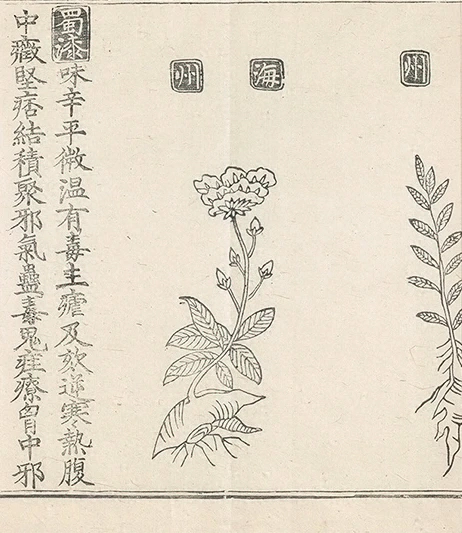 州
海州
蜀漆味辛平微温有毒主瘧及欬逆寒熱腹
中癥堅痞結積聚邪氣蠱毒鬼疰療胷中邪